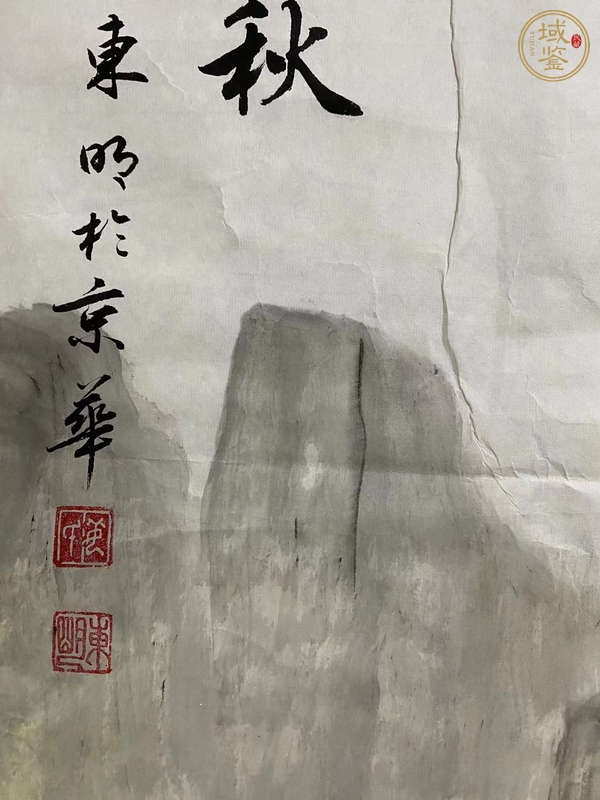 域鉴
秋
東明於京華
東明